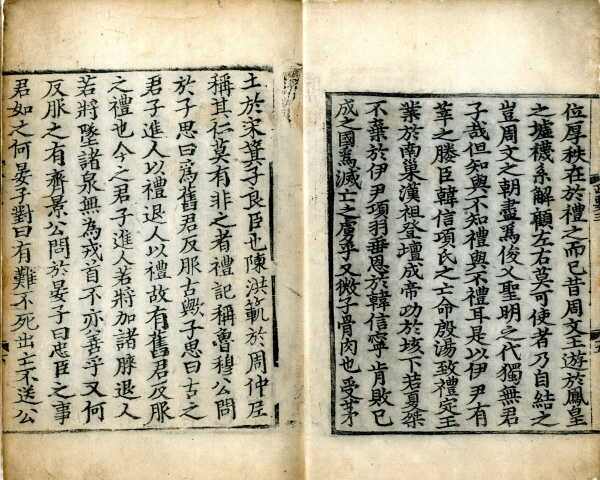 位厚秩在於禮之而已昔周文王遊於鳳皇
之墟襪系解顧左右莫可使者乃自結之
豈周文之朝盡爲俊乂聖明之代獨無君
子哉但知與不知禮與不禮耳是以伊尹有
莘之媵臣韓信項氏之亡命殷湯致禮定王
業於南巢漢祖登壇成帝功於垓下若夏桀
不棄於伊尹項羽垂恩於韓信寧肯敗已
成之國爲滅亡之虜乎又微子骨肉也受茅
土於宋箕子良臣也陳洪範於周仲尼
稱其仁莫有非之者禮記稱魯穆公問
於子思曰爲舊君反服古歟子思曰古之
君子進人以禮退人以禮故有舊君反服
之禮也今之君子進人若將加諸膝退人
若將墜諸泉無為戎首不亦善乎又何
反服之有齊景公問於晏子曰忠臣之事
君如之何晏子對曰有難不死出亡不送公